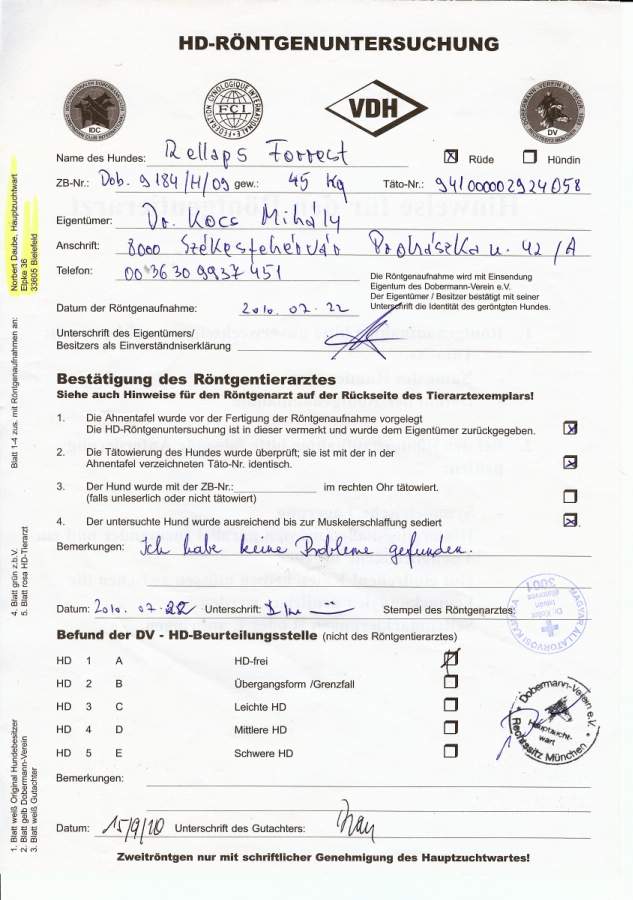 HD-RÖNTGENUNTERSUCHUNG
IDC
FCI
VDH
DV
Name des Hundes: Rellaps Forrest Rüde Hündin
ZB-Nr.: Dob. 9184/H/09 gew.: 45 Kg Täto-Nr.: 941000002924058
Eigentümer: Dr. Kocs Mihály
Anschrift: 8000 Székesfehérvár Prohászka u. 42/A
Telefon: 00 36 30 9937 451
Die Röntgenaufnahme wird mit Einsendung
Eigentum des Dobermann-Verein e.V.
Der Eigentümer / Besitzer bestätigt mit seiner
Unterschrift die Identität des gerönten Hundes.
Datum der Röntgenaufnahme: 2010. 07. 22
Unterschrift des Eigentümers/
Besitzers als Einverständniserklärung
Bestätigung des Röntgentierarztes
Siehe auch Hinweise für den Röntgenarzt auf der Rückseite des Tierarztexemplars!
1. Die Ahnentafel wurde vor der Fertigung der Röntgenaufnahme vorgelegt
Die HD-Röntgenuntersuchung ist in dieser vermerkt und wurde dem Eigentümer zurückgegeben.
2. Die Tätowierung des Hundes wurde überprüft; sie ist mit der in der
Ahnentafel verzeichneten Täto-Nr. identisch.
3. Der Hund wurde mit der ZB-Nr.: im rechten Ohr tätowiert.
(falls unleserlich oder nicht tätowiert)
4. Der untersuchte Hund wurde ausreichend bis zur Muskelerschlaffung sediert
Bemerkungen: Ich habe keine Probleme gefunden.
Datum: 2010. 07. 22 Unterschrift: Stempel des Röntgenarztes:
MAGYAR ÁLLATORVOSI KAMARA
2001
Befund der DV - HD-Beurteilungsstelle (nicht des Röntgentierarztes)
HD 1 A HD-frei
HD 2 B Übergangsform /Grenzfall
HD 3 C Leichte HD
HD 4 D Mittlere HD
HD 5 E Schwere HD
Dobermann-Verein e.V.
Hauptzucht-
wart
Rechtssitz München
Bemerkungen:
Datum: 15/9/10 Unterschrift des Gutachters:
Zweitröntgen nur mit schriftlicher Genehmigung des Hauptzuchtwartes!
Norbert Daube, Hauptzuchtwart
Elpke 36
33605 Bielefeld
Blatt 1-4 zus. mit Röntgenaufnahmen an:
4. Blatt grün z.b.V.
5. Blatt rosa HD-Tierarzt
1. Blatt weiß Original Hundebesitzer
2. Blatt gelb Dobermann-Verein
3. Blatt weiß Gutachter